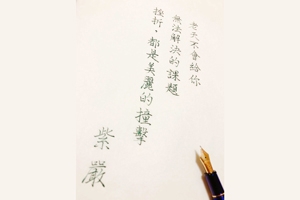 老天不會給你
無法解決的課題
挫折，都是美麗的撞擊
紫嚴